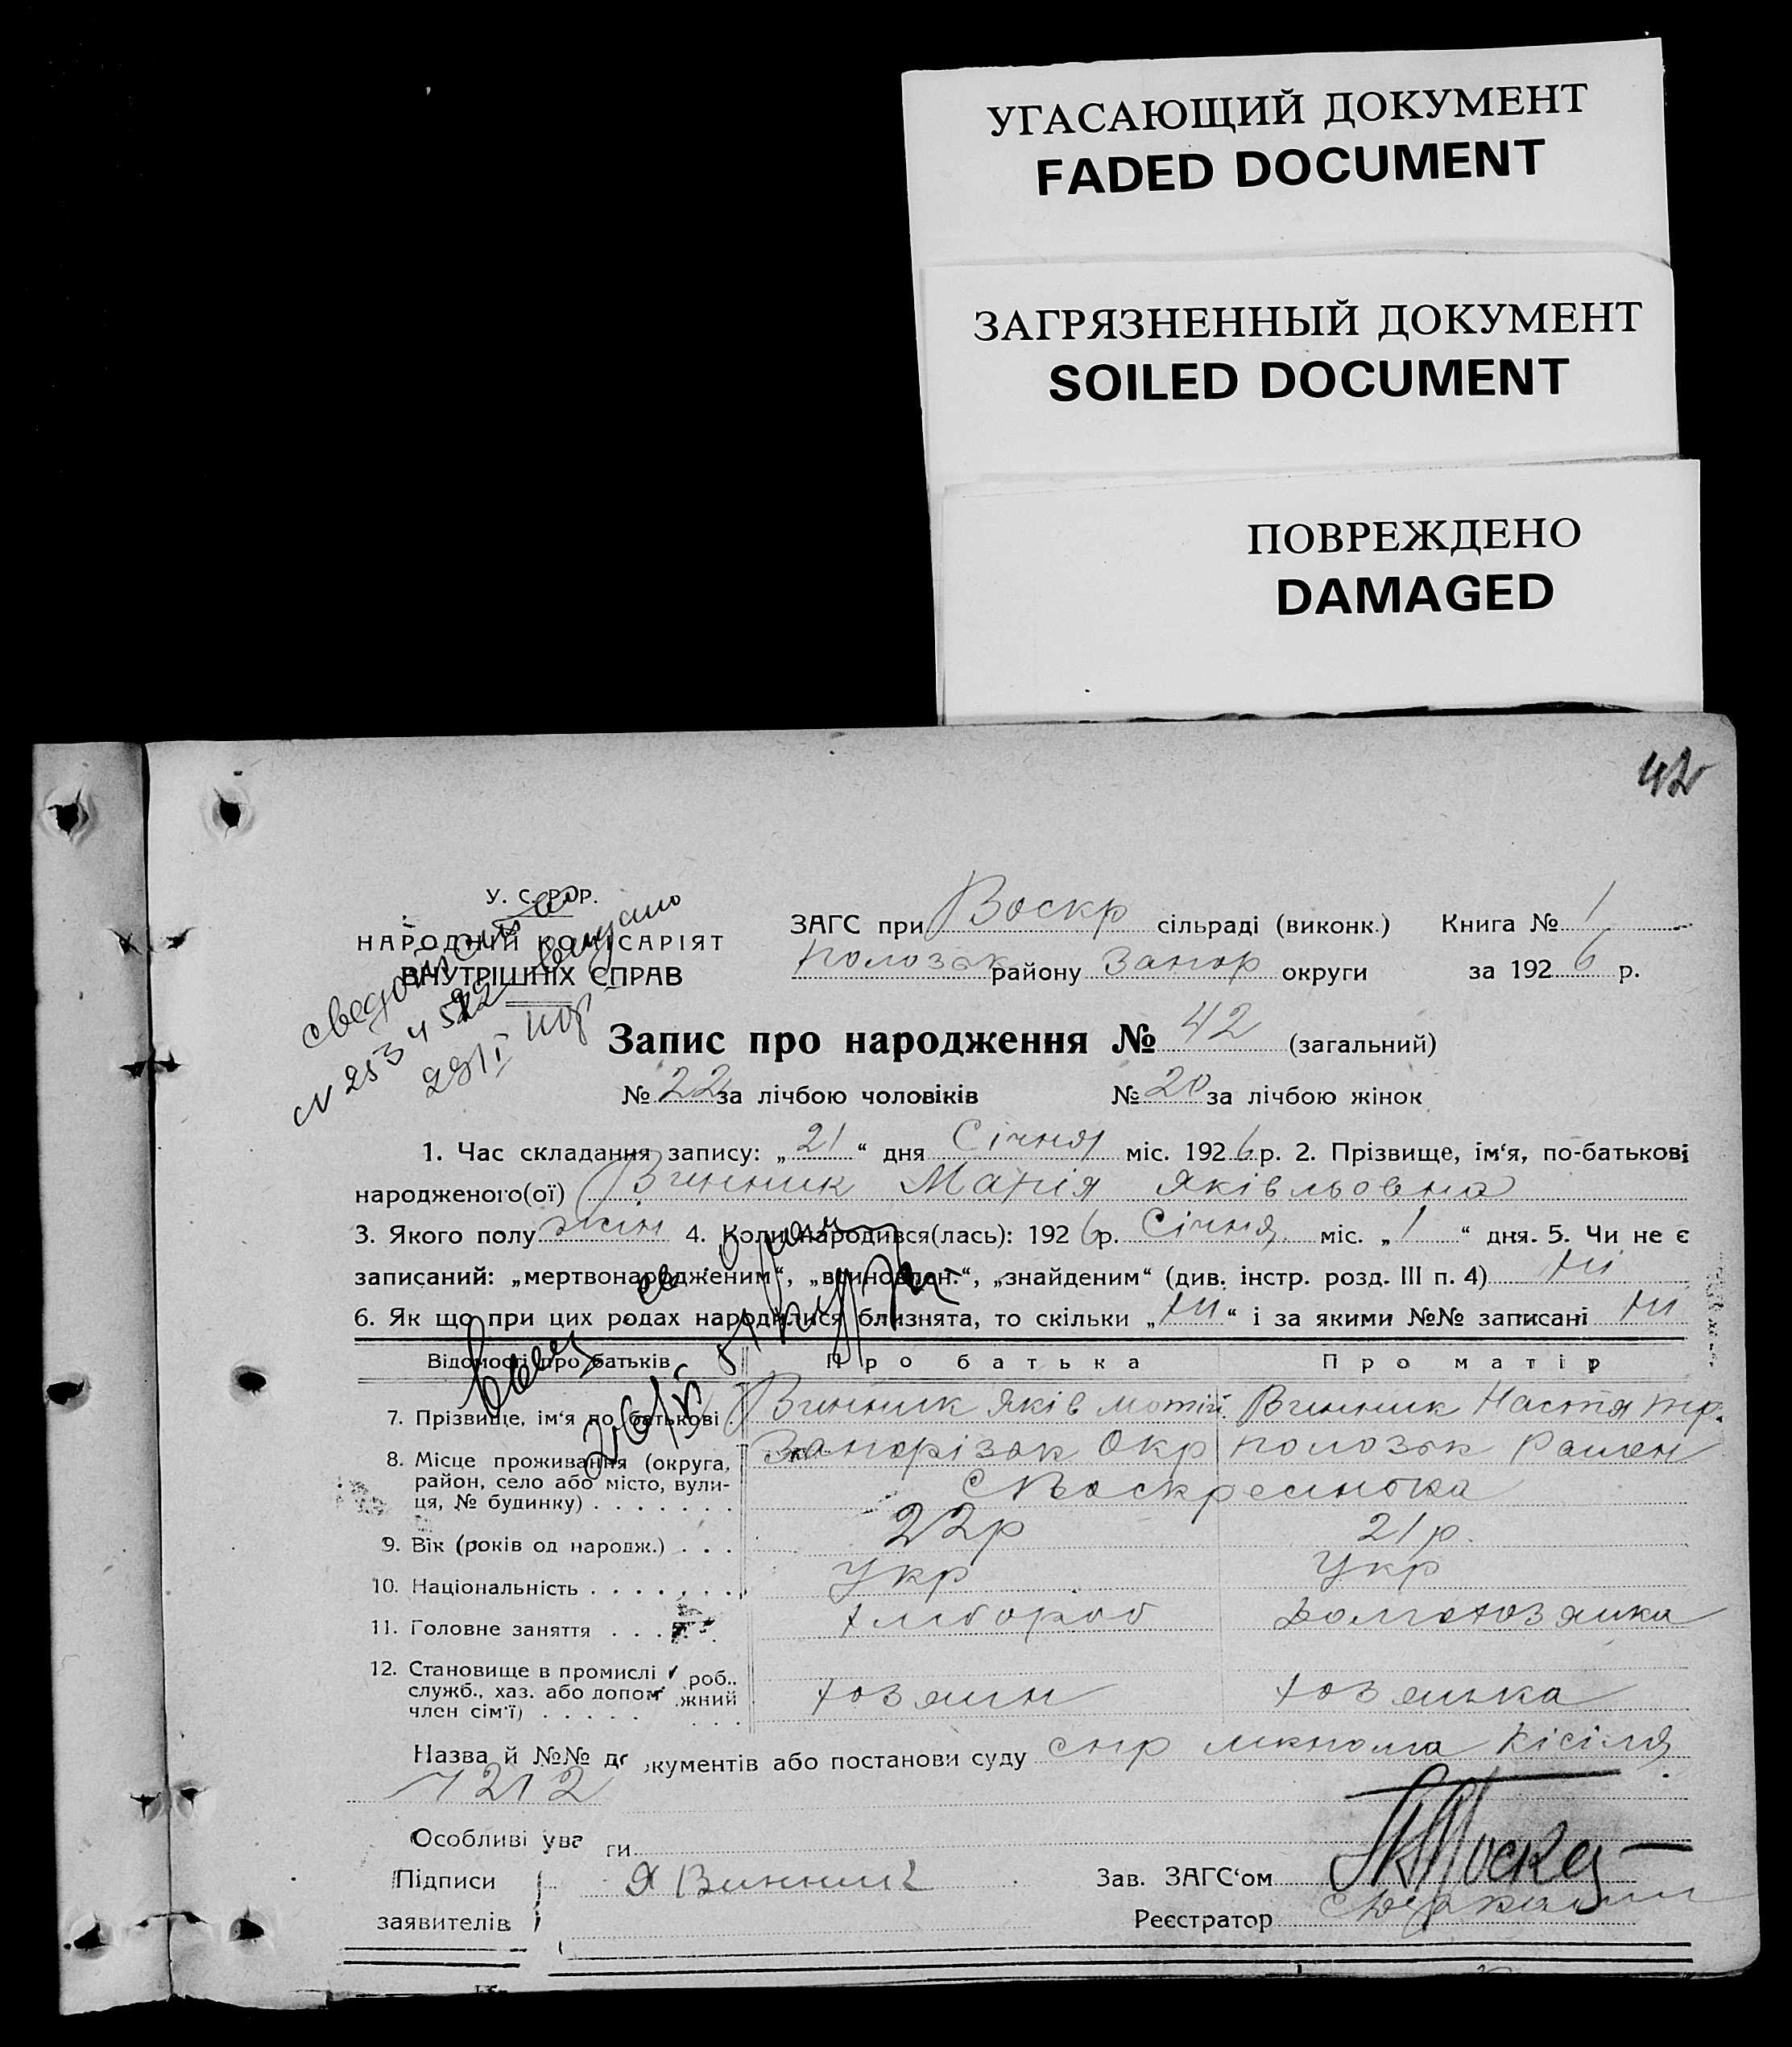 УГАСАЮЩИЙ ДОКУМЕНТ
FADED DOCUMENT
ЗАГРЯЗНЕННЫЙ ДОКУМЕНТ
SOILED DOCUMENT
ПОВРЕЖДЕНО
DAMAGED
42
У. С. Р. Р.
НАРОДНИЙ КОМІСАРІЯТ
ВНУТРІШНІХ СПРАВ
ЗАГС при Воскр сільраді (виконк.) Книга № 1
Полозьк району Запор округи за 1926 р.
Запис про народження № 42 (загальний)
№ 22 за лічбою чоловіків № 20 за лічбою жінок
1. Час складання запису: „21“ дня Січня міс. 1926 р. 2. Прізвище, ім‘я, по-батькові
народженого(ої) Винник Марія Яківльовна
3. Якого полу жін 4. Коли народився(лась): 1926 р. Січня міс. „1“ дня. 5. Чи не є
записаний: „мертвонародженим“, „вчиновлен.“, „знайденим“ (див. інстр. розд. III п. 4) ні
6. Як що при цих родах народилися близнята, то скільки „ні“ і за якими №№ записані ні
Відомості про батьків Про батька Про матір
7. Прізвище, ім‘я по батькові Винник Яків Мотій. Винник Настя
8. Місце проживання (округа, Запорізьк Окр Полозьк Район
район, село або місто, вули-
ця, № будинку) . . . . . . .
9. Вік (років од народж.) . . . 22р 21р.
10. Національність . . . . . . . Укр Укр
11. Головне заняття . . . . хлібороб домохозяйка
12. Становище в промислі роб..
служб., хаз. або допом жний хозяин хозяйка
член сім'ї) . . . . . . . .
Назва й №№ документів або постанови суду Кісіля
7212
Особливі уваги
Підписи Я Винник Зав. ЗАГС‘ом
заявителів Реєстратор